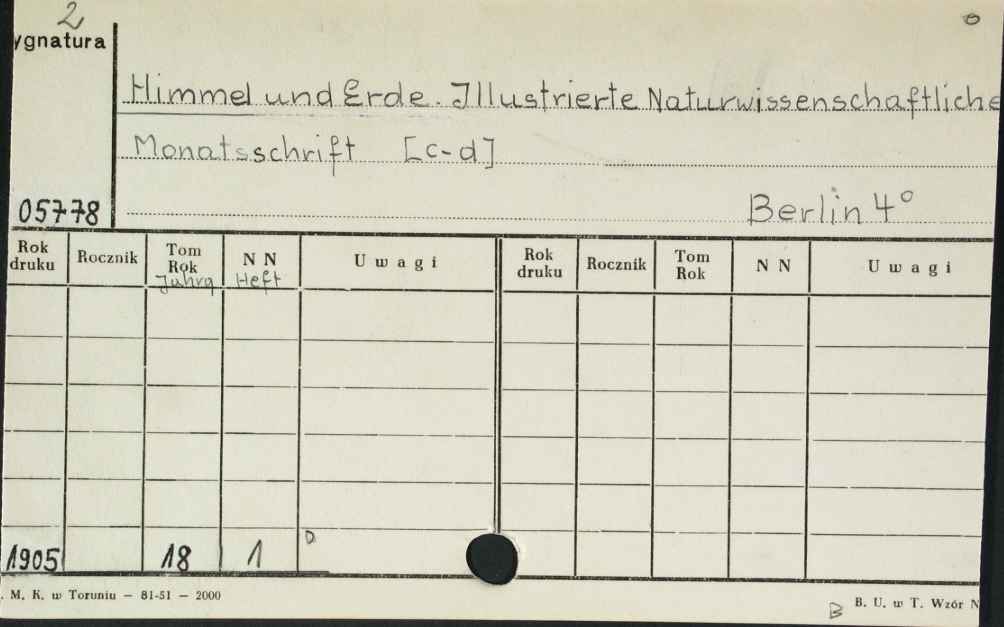 2
ygnatura
Himmel und Erde. Illustrierte Naturwissenschaftliche
Monatsschrift [c-d]
05778
Berlin 4°
Rok druku Rocznik Tom Rok N N Uwagi Rok druku Rocznik Tom Rok N N Uwagi
Jahrg Heft
1905 18 1 D
. M. K. w Toruniu — 81-51 — 2000
B B. U. w T. Wzór N